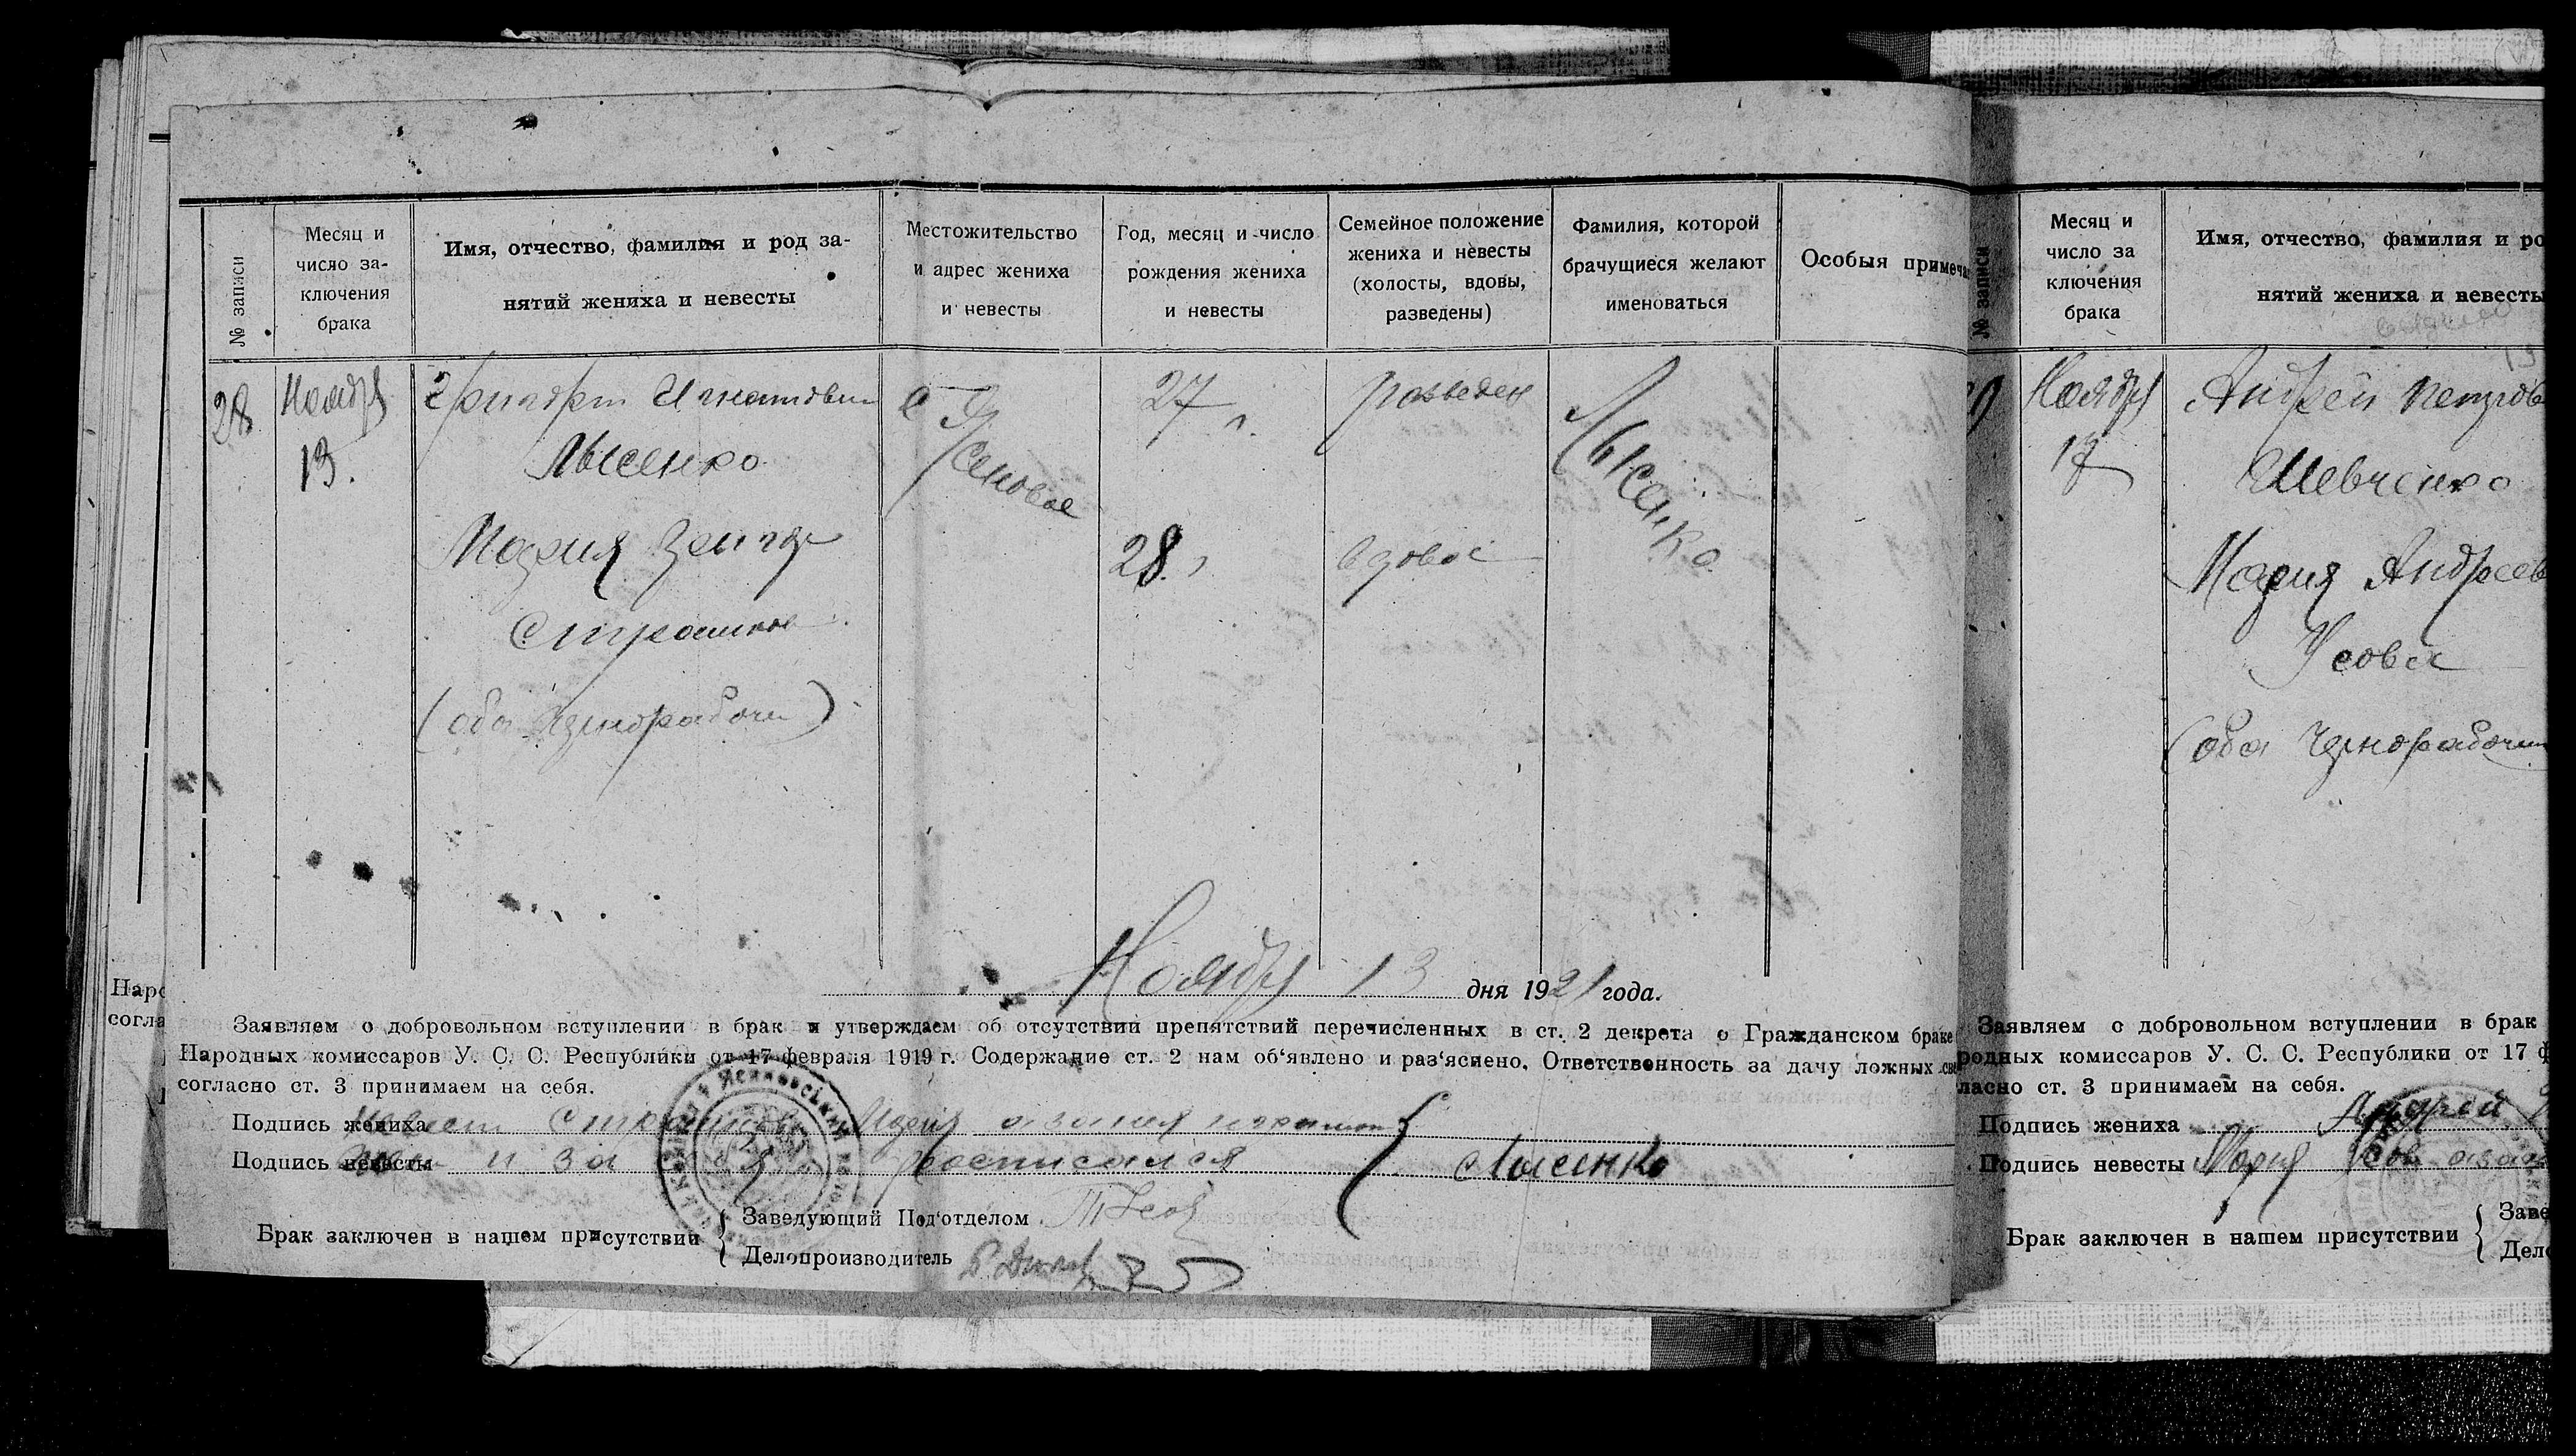 № записи
Месяц и
число за-
ключения
брака
Имя, отчество, фамилия и род за-
нятий жениха и невесты
Местожительство
и адрес жениха
и невесты
Год, месяц и число
рождения жениха
и невесты
Семейное положение
жениха и невесты
(холосты, вдовы,
разведены)
Фамилия, которой
брачущиеся желают
именоваться
Особыя примеча
28
Ноября
13.
Игнатович
Лысенко
Мария
(оба чернорабочи)
с
27 л.
разведен
28
вдова
Лысенко
Ноября 13 дня 1921 года.
Заявляем о добровольном вступлении в брак и утверждаем об отсутствии препятствий перечисленных в ст. 2 декрета о Гражданском браке
Народных комиссаров У. С. С. Республики от 17 февраля 1919 г. Содержание ст. 2 нам об‘явлено и раз‘яснено. Ответственность за дачу ложных све
согласно ст. 3 принимаем на себя.
Подпись жениха Мария
Подпись невесты и за росписался Лысенко
Брак заключен в нашем присутствии
Заведующий Под‘отделом
Делопроизводитель
Наро
согла
№ записи
Месяц и
число за
ключения
брака
Имя, отчество, фамилия и ро
нятий жениха и невесты
Ноября
Андрей Петров
Шевченко
Мария Андреев
Усова
(оба Чернорабочи
Заявляем о добровольном вступлении в брак
родных комиссаров У. С. С. Республики от 17 ф
ласно ст. 3 принимаем на себя.
Подпись жениха Андрей
Подпись невесты Мария
Брак заключен в нашем присутствии
Заве
Дело